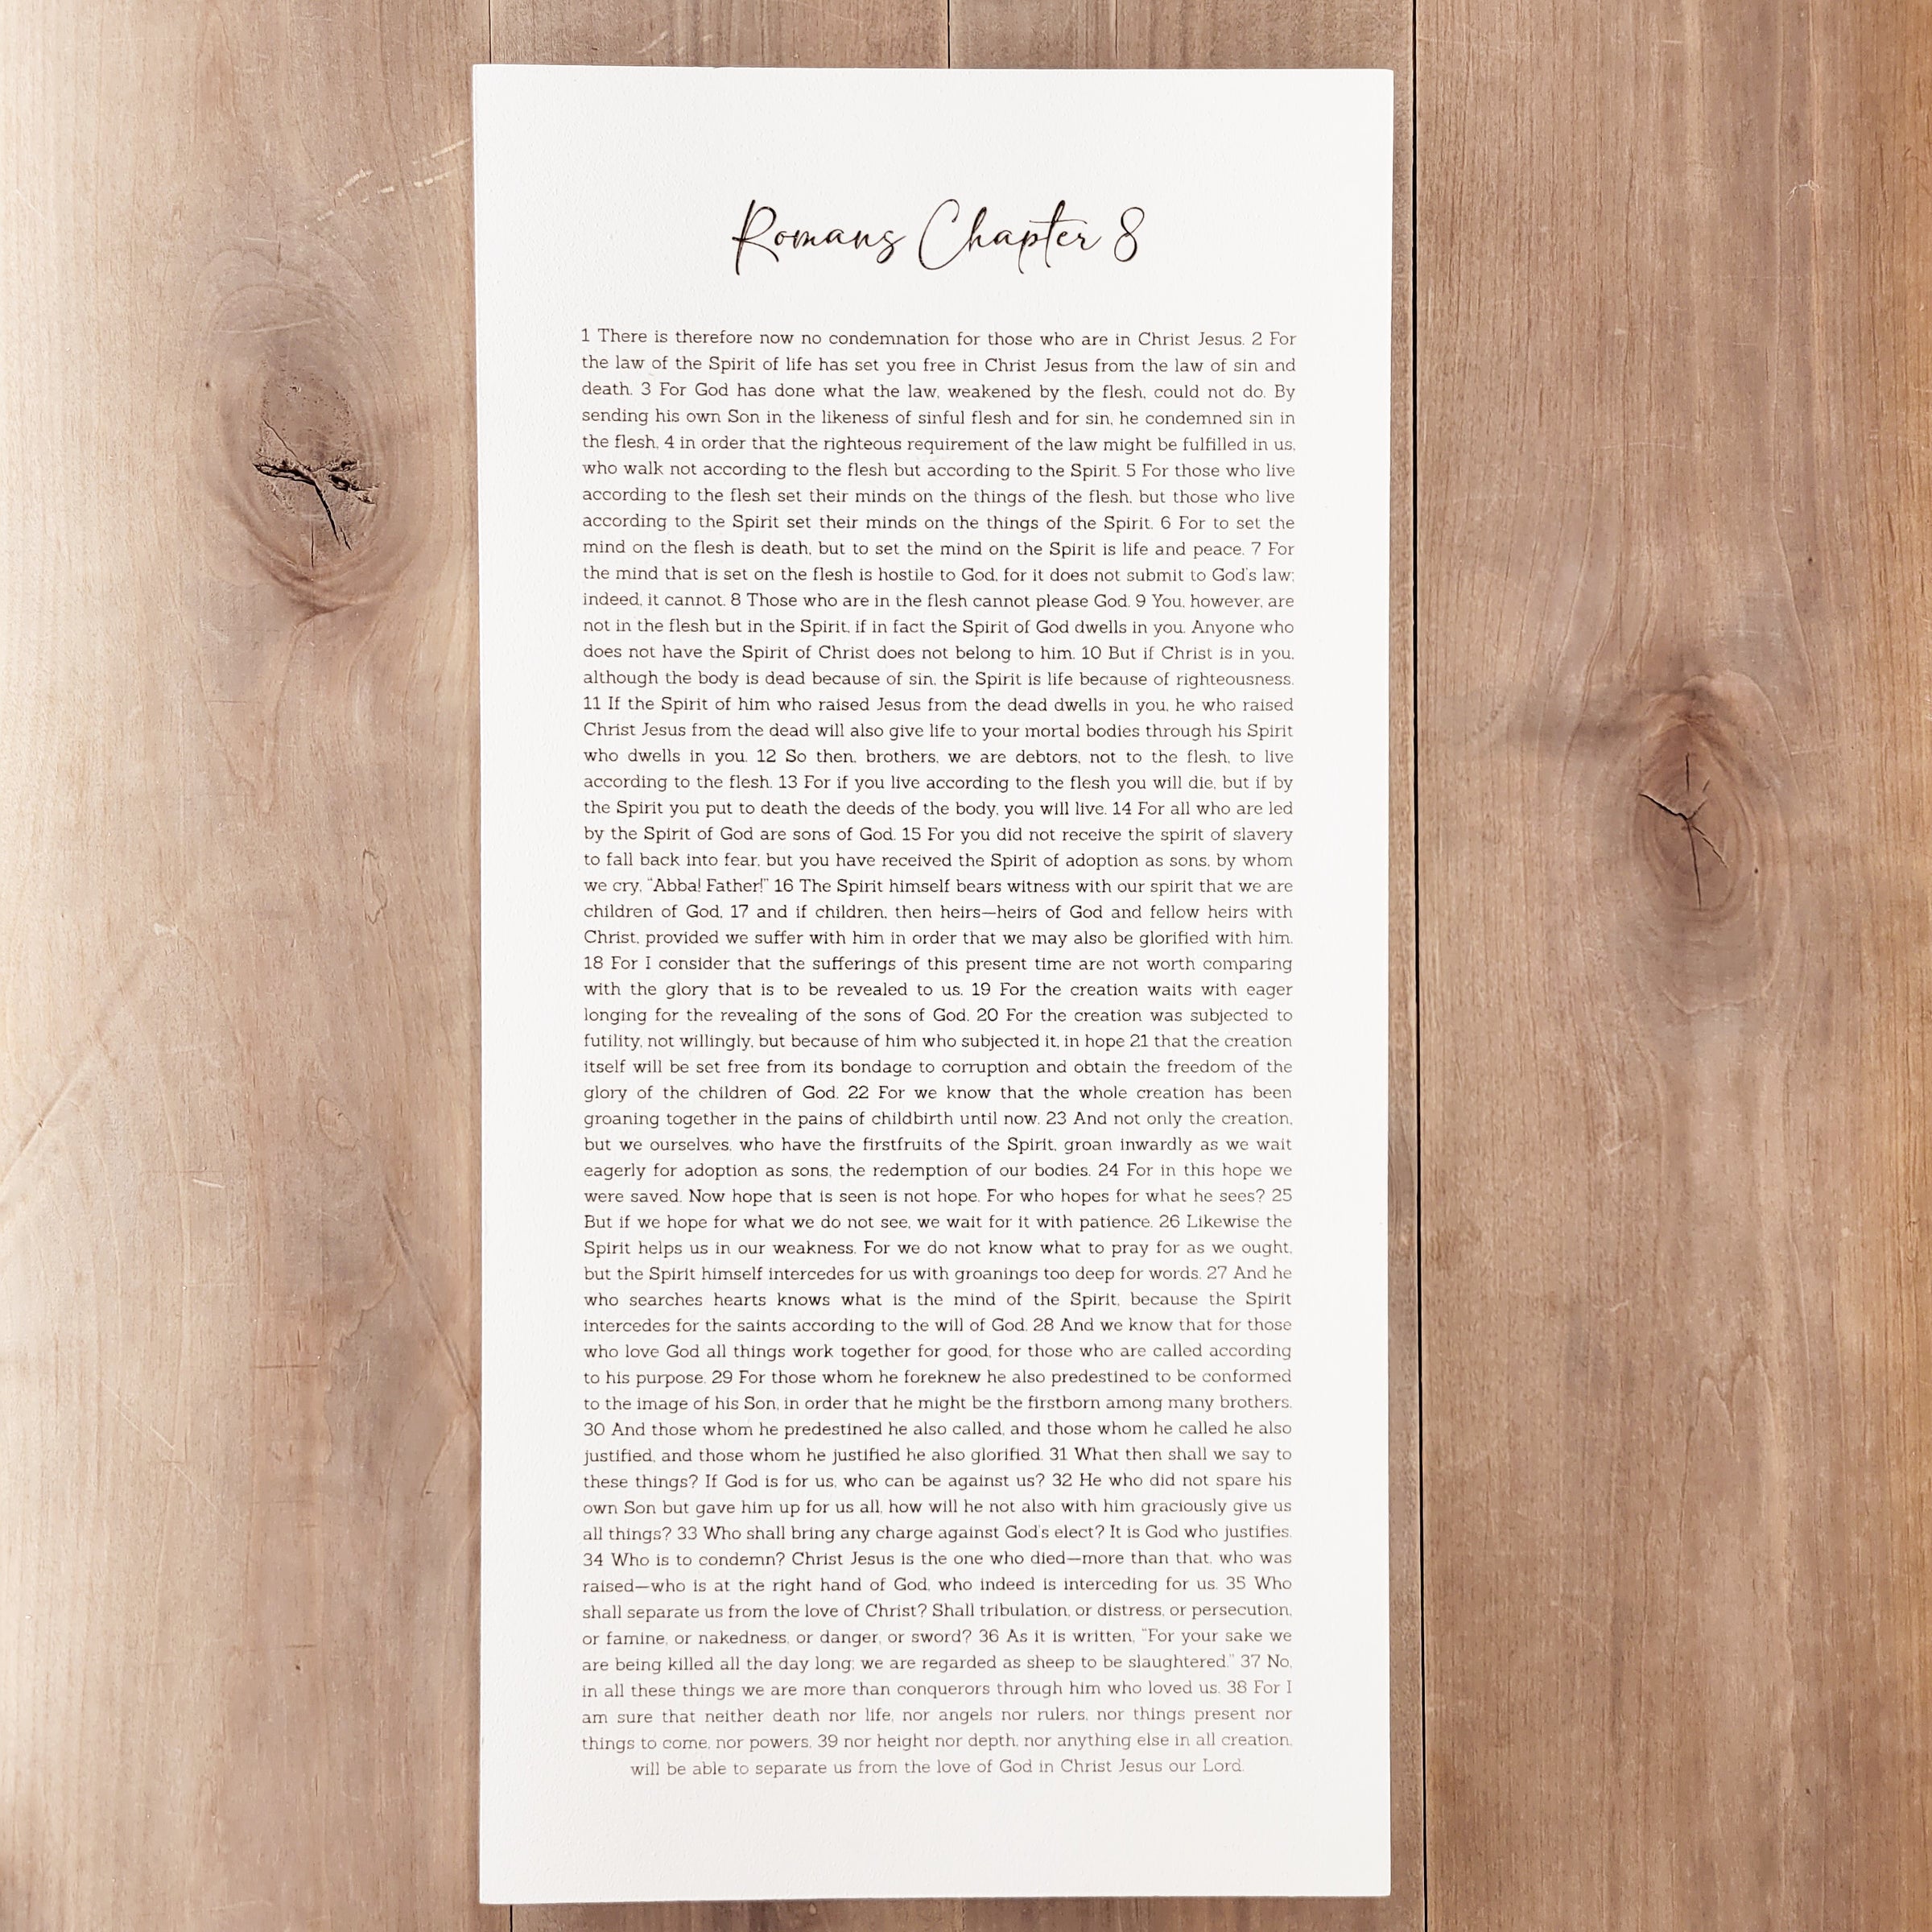 Romans Chapter 8
1 There is therefore now no condemnation for those who are in Christ Jesus. 2 For
the law of the Spirit of life has set you free in Christ Jesus from the law of sin and
death. 3 For God has done what the law, weakened by the flesh, could not do. By
sending his own Son in the likeness of sinful flesh and for sin, he condemned sin in
the flesh, 4 in order that the righteous requirement of the law might be fulfilled in us,
who walk not according to the flesh but according to the Spirit. 5 For those who live
according to the flesh set their minds on the things of the flesh, but those who live
according to the Spirit set their minds on the things of the Spirit. 6 For to set the
mind on the flesh is death, but to set the mind on the Spirit is life and peace. 7 For
the mind that is set on the flesh is hostile to God, for it does not submit to God's law;
indeed, it cannot. 8 Those who are in the flesh cannot please God. 9 You, however, are
not in the flesh but in the Spirit, if in fact the Spirit of God dwells in you. Anyone who
does not have the Spirit of Christ does not belong to him. 10 But if Christ is in you,
although the body is dead because of sin, the Spirit is life because of righteousness.
11 If the Spirit of him who raised Jesus from the dead dwells in you, he who raised
Christ Jesus from the dead will also give life to your mortal bodies through his Spirit
who dwells in you. 12 So then, brothers, we are debtors, not to the flesh, to live
according to the flesh. 13 For if you live according to the flesh you will die, but if by
the Spirit you put to death the deeds of the body, you will live. 14 For all who are led
by the Spirit of God are sons of God. 15 For you did not receive the spirit of slavery
to fall back into fear, but you have received the Spirit of adoption as sons, by whom
we cry, "Abba! Father!" 16 The Spirit himself bears witness with our spirit that we are
children of God, 17 and if children, then heirs—heirs of God and fellow heirs with
Christ, provided we suffer with him in order that we may also be glorified with him.
18 For I consider that the sufferings of this present time are not worth comparing
with the glory that is to be revealed to us. 19 For the creation waits with eager
longing for the revealing of the sons of God. 20 For the creation was subjected to
futility, not willingly, but because of him who subjected it, in hope 21 that the creation
itself will be set free from its bondage to corruption and obtain the freedom of the
glory of the children of God. 22 For we know that the whole creation has been
groaning together in the pains of childbirth until now. 23 And not only the creation,
but we ourselves, who have the firstfruits of the Spirit, groan inwardly as we wait
eagerly for adoption as sons, the redemption of our bodies. 24 For in this hope we
were saved. Now hope that is seen is not hope. For who hopes for what he sees? 25
But if we hope for what we do not see, we wait for it with patience. 26 Likewise the
Spirit helps us in our weakness. For we do not know what to pray for as we ought,
but the Spirit himself intercedes for us with groanings too deep for words. 27 And he
who searches hearts knows what is the mind of the Spirit, because the Spirit
intercedes for the saints according to the will of God. 28 And we know that for those
who love God all things work together for good, for those who are called according
to his purpose. 29 For those whom he foreknew he also predestined to be conformed
to the image of his Son, in order that he might be the firstborn among many brothers.
30 And those whom he predestined he also called, and those whom he called he also
justified, and those whom he justified he also glorified. 31 What then shall we say to
these things? If God is for us, who can be against us? 32 He who did not spare his
own Son but gave him up for us all, how will he not also with him graciously give us
all things? 33 Who shall bring any charge against God's elect? It is God who justifies.
34 Who is to condemn? Christ Jesus is the one who died—more than that, who was
raised—who is at the right hand of God, who indeed is interceding for us. 35 Who
shall separate us from the love of Christ? Shall tribulation, or distress, or persecution,
or famine, or nakedness, or danger, or sword? 36 As it is written, "For your sake we
are being killed all the day long; we are regarded as sheep to be slaughtered." 37 No,
in all these things we are more than conquerors through him who loved us. 38 For I
am sure that neither death nor life, nor angels nor rulers, nor things present nor
things to come, nor powers, 39 nor height nor depth, nor anything else in all creation,
will be able to separate us from the love of God in Christ Jesus our Lord.